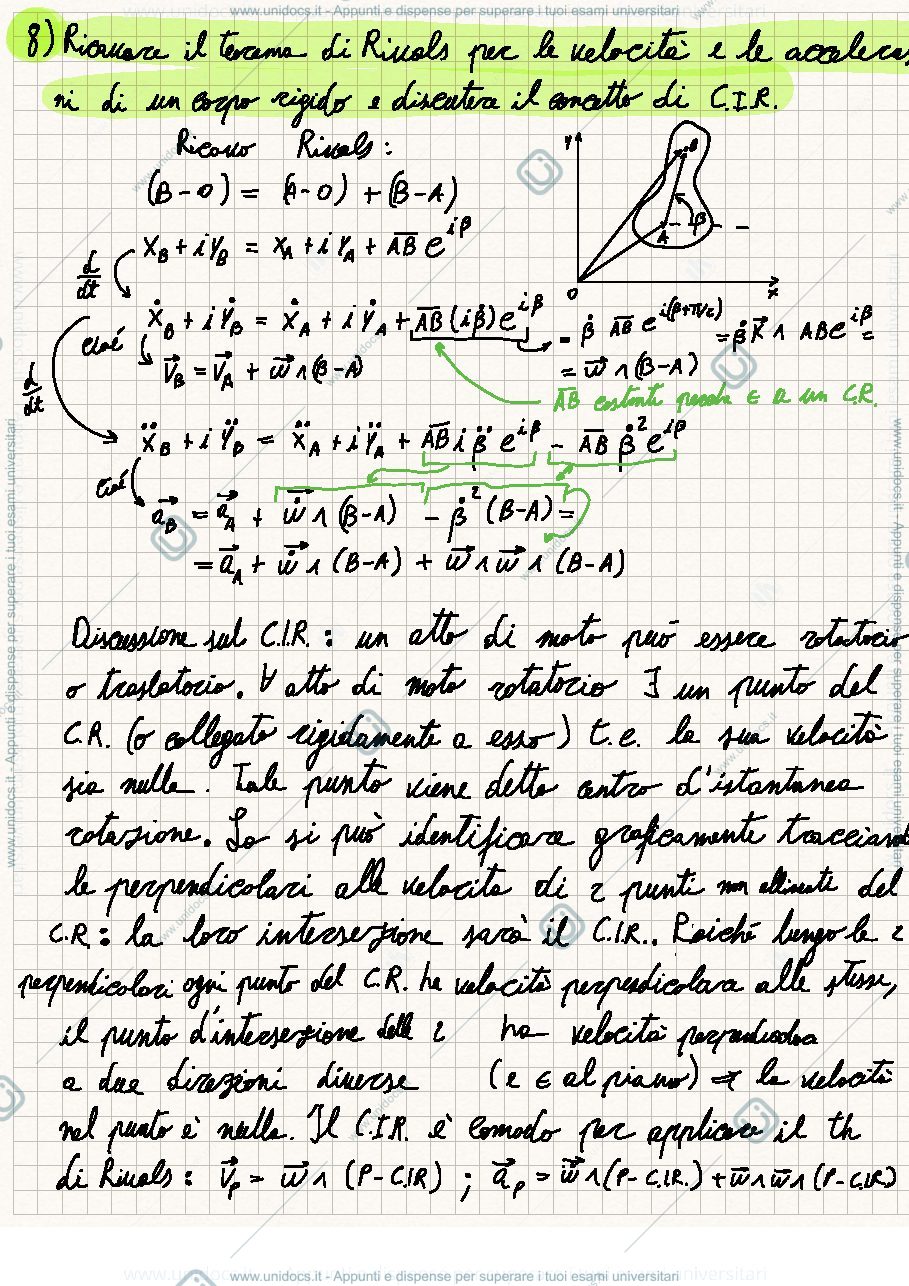 www.unidocs.it - Appunti e dispense per superare i tuoi esami universitari
8) Ricavare il teorema di Rivals per le velocità e le accelerazio
ni di un corpo rigido e discutere il concetto di C.I.R.
Ricavo Rivals:
(B-O) = (A-O) + (B-A)
X_B + iY_B = X_A + iY_A + \overline{AB} e^{iβ}
d/dt
Ẋ_B + iẎ_B = Ẋ_A + iẎ_A + \overline{AB} (iβ̇) e^{iβ} = β̇ \overline{AB} e^{i(β+π/2)} = β̇ \vec{K} ∧ AB e^{iβ} =
cioé
\vec{V}_B = \vec{V}_A + \vec{ω} ∧ (B-A)
= \vec{ω} ∧ (B-A)
\overline{AB} costante perché ∈ a un C.R.
d/dt
Ẍ_B + iŸ_B = Ẍ_A + iŸ_A + \overline{AB} i β̈ e^{iβ} - \overline{AB} β̇² e^{iβ}
cioé
\vec{a}_B = \vec{a}_A + \vec{ω̇} ∧ (B-A) - β̇² (B-A) =
= \vec{a}_A + \vec{ω̇} ∧ (B-A) + \vec{ω} ∧ \vec{ω} ∧ (B-A)
Y
B
A
β
O
X
Discussione sul C.I.R.: un atto di moto può essere rotatorio
o traslatorio. ∀ atto di moto rotatorio ∃ un punto del
C.R. (o collegato rigidamente a esso) t.c. la sua velocità
sia nulla. Tale punto viene detto centro d'istantanea
rotazione. Lo si può identificare graficamente tracciando
le perpendicolari alle velocità di 2 punti non allineati del
C.R.: la loro intersezione sarà il C.I.R.. Poiché lungo le 2
perpendicolari ogni punto del C.R. ha velocità perpendicolare alle stesse,
il punto d'intersezione delle 2 ha velocità perpendicolare
a due direzioni diverse (e ∈ al piano) ⇒ la velocità
nel punto è nulla. Il C.I.R. è comodo per applicare il th
di Rivals: \vec{V}_P = \vec{ω} ∧ (P-C.I.R) ; \vec{a}_P = \vec{ω̇} ∧ (P-C.I.R.) + \vec{ω} ∧ \vec{ω} ∧ (P-C.I.R)
www.unidocs.it - Appunti e dispense per superare i tuoi esami universitari